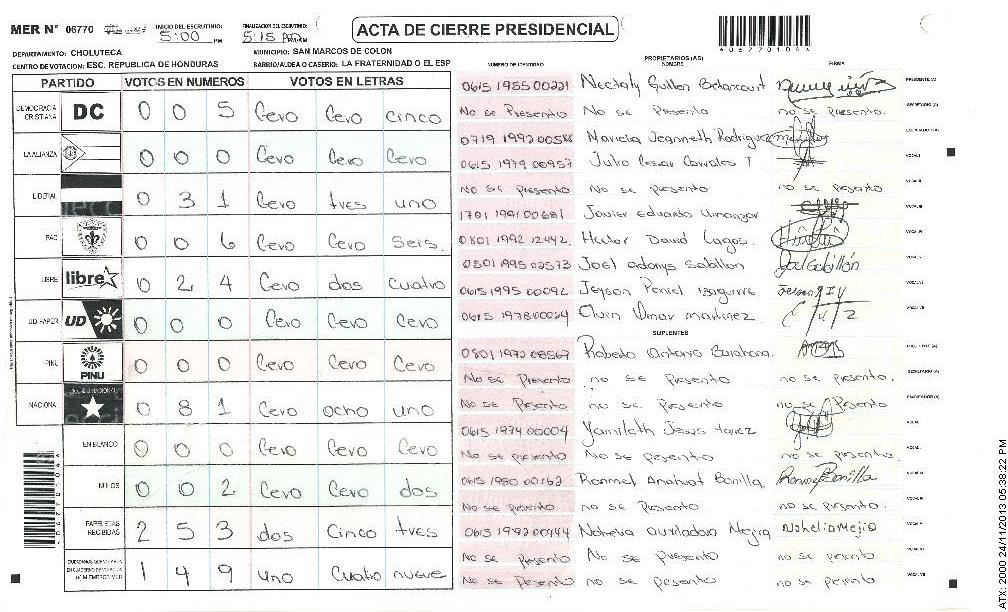 MER N° 06770 INICIO DEL ESCRUTINIO: 5:00 PM FINALIZACION DEL ESCRUTINIO: 5:15 PM ACTA DE CIERRE PRESIDENCIAL
DEPARTAMENTO: CHOLUTECA MUNICIPIO: SAN MARCOS DE COLON
CENTRO DE VOTACION: ESC. REPUBLICA DE HONDURAS BARRIO/ALDEA O CASERIO: LA FRATERNIDAD O EL ESP
PARTIDO VOTOS EN NUMEROS VOTOS EN LETRAS
DEMOCRACIA CRISTIANA DC 0 0 5 Cero Cero cinco
LA ALIANZA 0 0 0 Cero Cero Cero
LIBERAL 0 3 1 Cero tres uno
PAC 0 0 6 Cero Cero seis.
LIBRE libre 0 2 4 Cero dos cuatro
UD-FAPER UD 0 0 0 Cero Cero Cero
PINU PINU 0 0 0 Cero Cero Cero
NACIONAL 0 8 1 Cero ocho uno
EN BLANCO 0 0 0 Cero Cero Cero
NULOS 0 0 2 Cero Cero dos
PAPELETAS RECIBIDAS 2 5 3 dos Cinco tres
1 4 9 uno Cuatro nueve
NUMERO DE IDENTIDAD PROPIETARIOS (AS) NOMBRE FIRMA
0615 1955 00221 PRESIDENTE (A)
No se Presento No se Presento no se presento. SECRETARIO (A)
0719 1992 00588 Mariela Jeanneth Rodriguez ESCRUTADOR (A)
0615 1979 00957 Julio Cesar Corrales T VOCAL I
No se Presento No se Presento no se Presento VOCAL II
1701 1991 00681 Javier Eduardo Umanzor VOCAL III
0801 1992 12442. Hector David Lagos.
0801 1995 02573 Joel adonys Sabillon Joel Sabillón
0615 1995 00092 Jeyson Peniel
0615 1978 00024 martinez
SUPLENTES
0801 1972 08567 Roberto Antonio Barahona.
No se Presento no se Presento no se presento. SECRETARIO (A)
No se Presento no se Presento no se Presento ESCRUTADOR (A)
0615 1974 00004 Yamileth Jesus
No se presento No se Presento no se presento.
0615 1980 00162 Ronmel Bonilla.
No se Presento no se Presento no se presento.
0615 1992 00144 Nohelia Auxiliadora Mejia Nohelia Mejia
No se Presento No se Presento no se Presento
No se Presento no se Presento no se presento. VOCAL VII
ATX: 2000 24/11/2013 05:38:22 PM